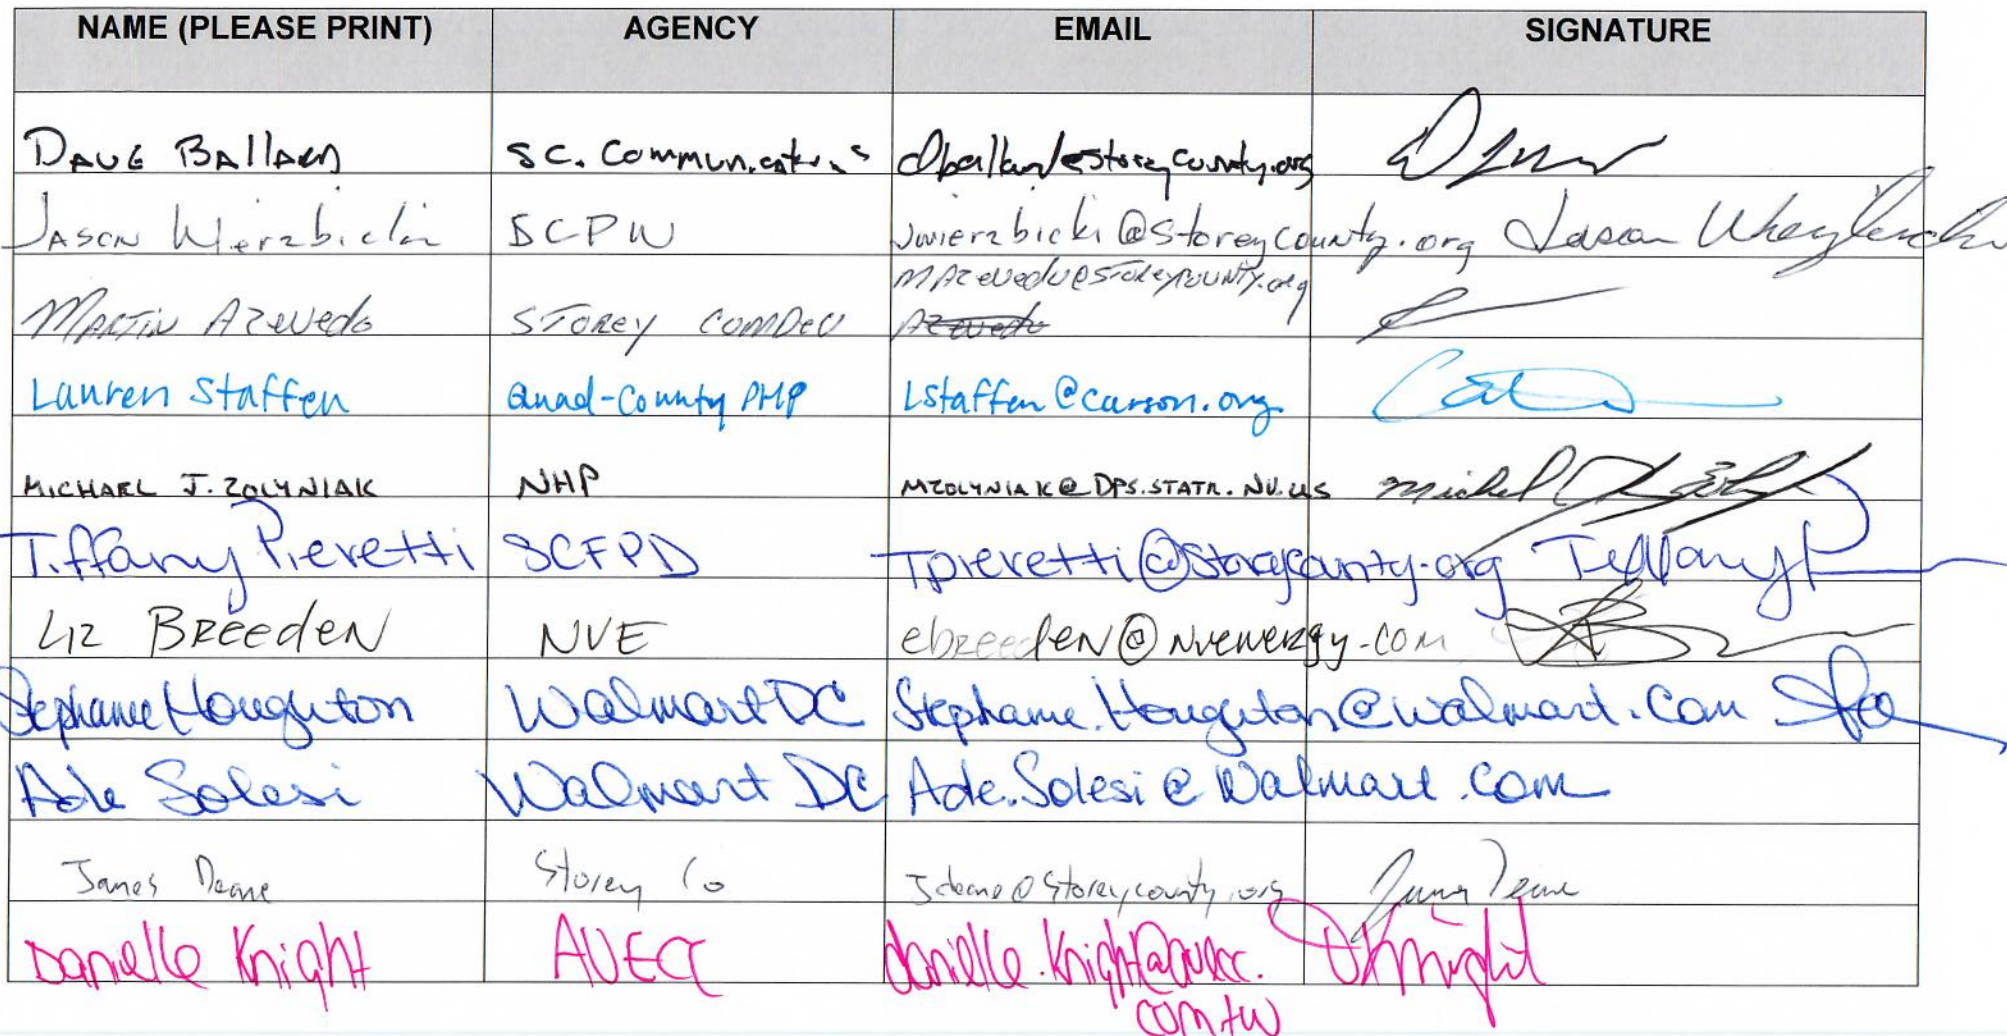 NAME (PLEASE PRINT) AGENCY EMAIL SIGNATURE
DAVE BALLARD SC. Communications dballard@storeycounty.org
JASON Wierzbicki SCPW jwierzbicki@storeycounty.org
MAzevedo@STOREYCOUNTY.org
MARTIN AZevedo STOREY COMDEV Azevedo
Lauren Staffen Quad-County PHP Lstaffen@carson.org
MICHAEL J. ZOLYNIAK NHP MZOLYNIAK@DPS.STATE.NV.US
Tiffany Pieretti SCFPD Tpieretti@storeycounty.org Tiffany P
LIZ BREEDEN NVE ebreeden@nvenergy.com
Stephanie Houghton Walmart DC Stephanie.Houghton@walmart.com
Ade Solesi Walmart DC Ade.Solesi@Walmart.com
James Deane Storey Co Jdeane@Storeycounty.org James Deane
Danielle Knight AVECC danielle.knight@avecc. DKnight
com.tw